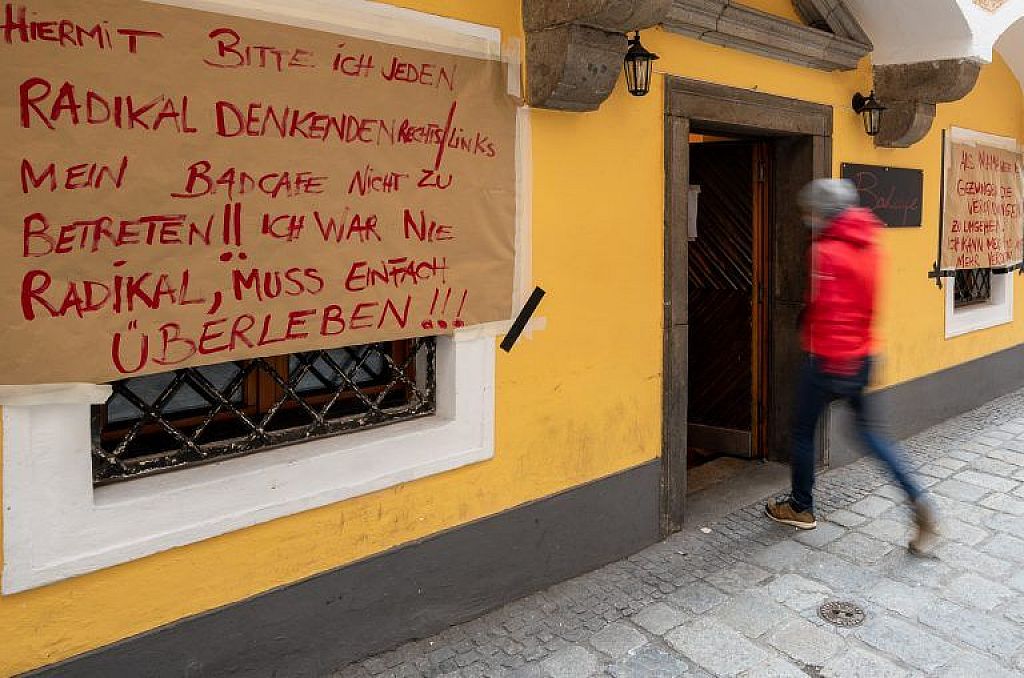 HIERMIT BITTE ICH JEDEN
RADIKAL DENKENDEN RECHTS/LINKS
MEIN BADCAFE NICHT ZU
BETRETEN!! ICH WAR NIE
RADIKAL, MUSS EINFACH
ÜBERLEBEN!!!
Badcafe
ALS MAMA
GEZWUNGEN DIE
ZU UMGEHEN
ICH KANN
MEHR